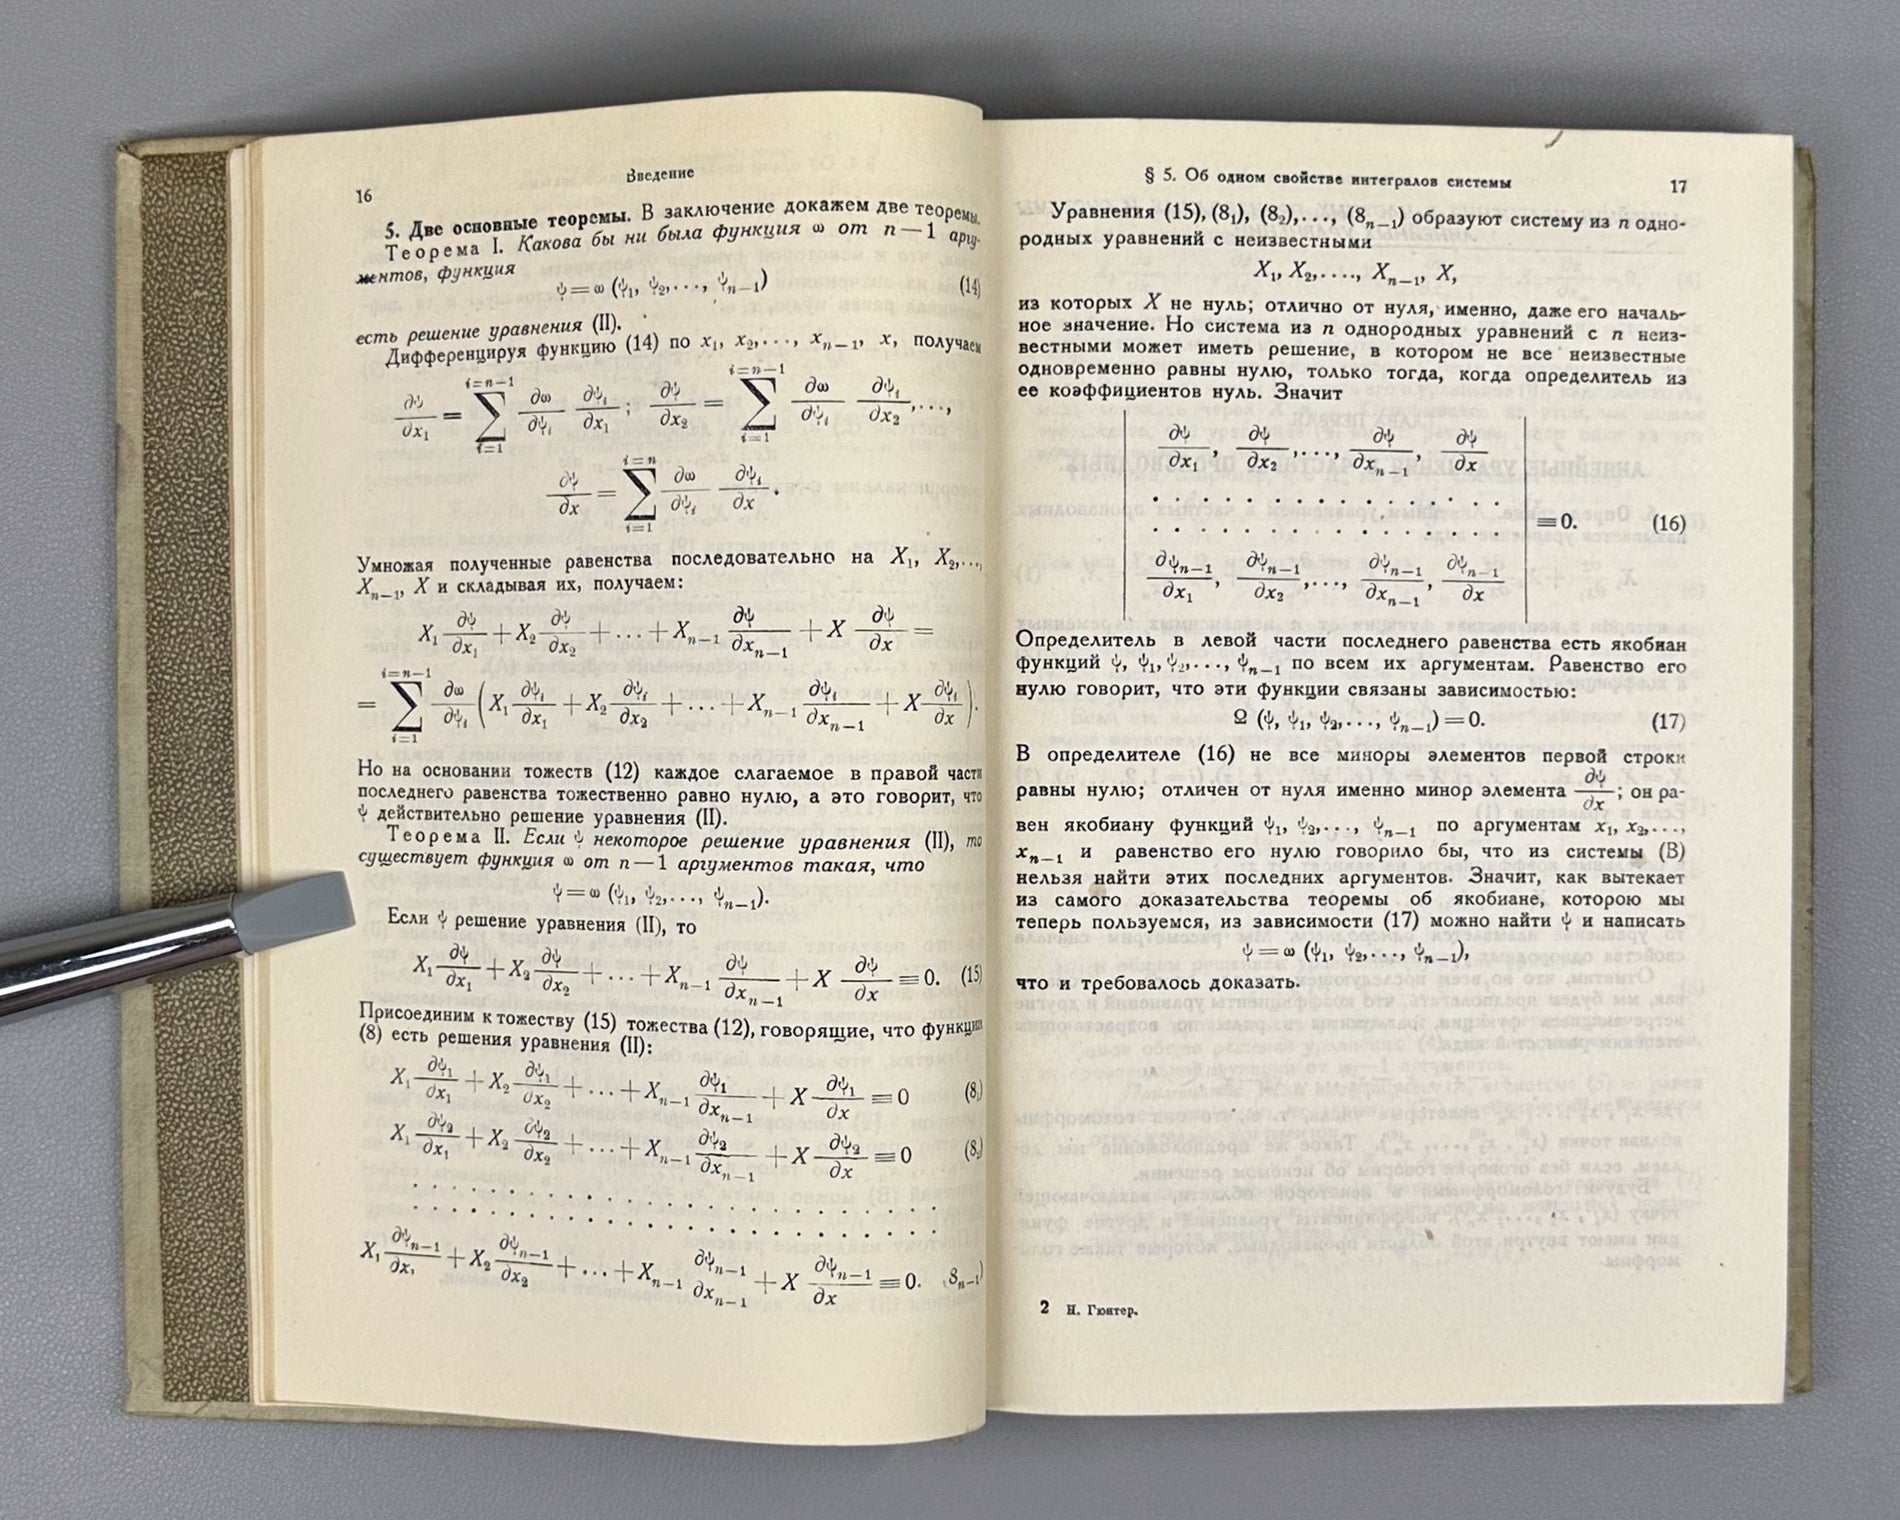 Введение
16
5. Две основные теоремы. В заключение докажем две теоремы.
Теорема I. Какова бы ни была функция ω от n — 1 аргу-
ментов, функция
ψ = ω (ψ₁, ψ₂, . . ., ψₙ₋₁) (14)
есть решение уравнения (II).
Дифференцируя функцию (14) по x₁, x₂, . . ., xₙ₋₁, x, получаем
∂ψ/∂x₁ = ∑_{i=1}^{i=n−1} ∂ω/∂ψᵢ ∂ψᵢ/∂x₁ ; ∂ψ/∂x₂ = ∑_{i=1}^{i=n−1} ∂ω/∂ψᵢ ∂ψᵢ/∂x₂ , . . .,
∂ψ/∂x = ∑_{i=1}^{i=n} ∂ω/∂ψᵢ ∂ψᵢ/∂x .
Умножая полученные равенства последовательно на X₁, X₂, . . .,
Xₙ₋₁, X и складывая их, получаем:
X₁ ∂ψ/∂x₁ + X₂ ∂ψ/∂x₂ + . . . + Xₙ₋₁ ∂ψ/∂xₙ₋₁ + X ∂ψ/∂x =
= ∑_{i=1}^{i=n−1} ∂ω/∂ψᵢ (X₁ ∂ψᵢ/∂x₁ + X₂ ∂ψᵢ/∂x₂ + . . . + Xₙ₋₁ ∂ψᵢ/∂xₙ₋₁ + X ∂ψᵢ/∂x).
Но на основании тожеств (12) каждое слагаемое в правой части
последнего равенства тожественно равно нулю, а это говорит, что
ψ действительно решение уравнения (II).
Теорема II. Если ψ некоторое решение уравнения (II), то
существует функция ω от n — 1 аргументов такая, что
ψ = ω (ψ₁, ψ₂, . . ., ψₙ₋₁).
Если ψ решение уравнения (II), то
X₁ ∂ψ/∂x₁ + X₂ ∂ψ/∂x₂ + . . . + Xₙ₋₁ ∂ψ/∂xₙ₋₁ + X ∂ψ/∂x ≡ 0. (15)
Присоединим к тожеству (15) тожества (12), говорящие, что функции
(8) есть решения уравнения (II):
X₁ ∂ψ₁/∂x₁ + X₂ ∂ψ₁/∂x₂ + . . . + Xₙ₋₁ ∂ψ₁/∂xₙ₋₁ + X ∂ψ₁/∂x ≡ 0 (8₁)
X₁ ∂ψ₂/∂x₁ + X₂ ∂ψ₂/∂x₂ + . . . + Xₙ₋₁ ∂ψ₂/∂xₙ₋₁ + X ∂ψ₂/∂x ≡ 0 (8₂)
. . . . . . . . . . . . . . . . . . . .
. . . . . . . . . . . . . . . . . . . .
X₁ ∂ψₙ₋₁/∂x₁ + X₂ ∂ψₙ₋₁/∂x₂ + . . . + Xₙ₋₁ ∂ψₙ₋₁/∂xₙ₋₁ + X ∂ψₙ₋₁/∂x ≡ 0. (8ₙ₋₁)
§ 5. Об одном свойстве интегралов системы
17
Уравнения (15), (8₁), (8₂), . . ., (8ₙ₋₁) образуют систему из n одно-
родных уравнений с неизвестными
X₁, X₂, . . ., Xₙ₋₁, X,
из которых X не нуль; отлично от нуля, именно, даже его началь-
ное значение. Но система из n однородных уравнений с n неиз-
вестными может иметь решение, в котором не все неизвестные
одновременно равны нулю, только тогда, когда определитель из
ее коэффициентов нуль. Значит
| ∂ψ/∂x₁ , ∂ψ/∂x₂ , . . ., ∂ψ/∂xₙ₋₁ , ∂ψ/∂x |
| . . . . . . . . . . . . . . . . |
| . . . . . . . . . . . . . . . . | ≡ 0. (16)
| ∂ψₙ₋₁/∂x₁ , ∂ψₙ₋₁/∂x₂ , . . ., ∂ψₙ₋₁/∂xₙ₋₁ , ∂ψₙ₋₁/∂x |
Определитель в левой части последнего равенства есть якобиан
функций ψ, ψ₁, ψ₂, . . ., ψₙ₋₁ по всем их аргументам. Равенство его
нулю говорит, что эти функции связаны зависимостью:
Ω (ψ, ψ₁, ψ₂, . . ., ψₙ₋₁) = 0. (17)
В определителе (16) не все миноры элементов первой строки
равны нулю; отличен от нуля именно минор элемента ∂ψ/∂x ; он ра-
вен якобиану функций ψ₁, ψ₂, . . ., ψₙ₋₁ по аргументам x₁, x₂, . . .,
xₙ₋₁ и равенство его нулю говорило бы, что из системы (B)
нельзя найти этих последних аргументов. Значит, как вытекает
из самого доказательства теоремы об якобиане, которою мы
теперь пользуемся, из зависимости (17) можно найти ψ и написать
ψ = ω (ψ₁, ψ₂, . . ., ψₙ₋₁),
что и требовалось доказать.
2 Н. Гюнтер.